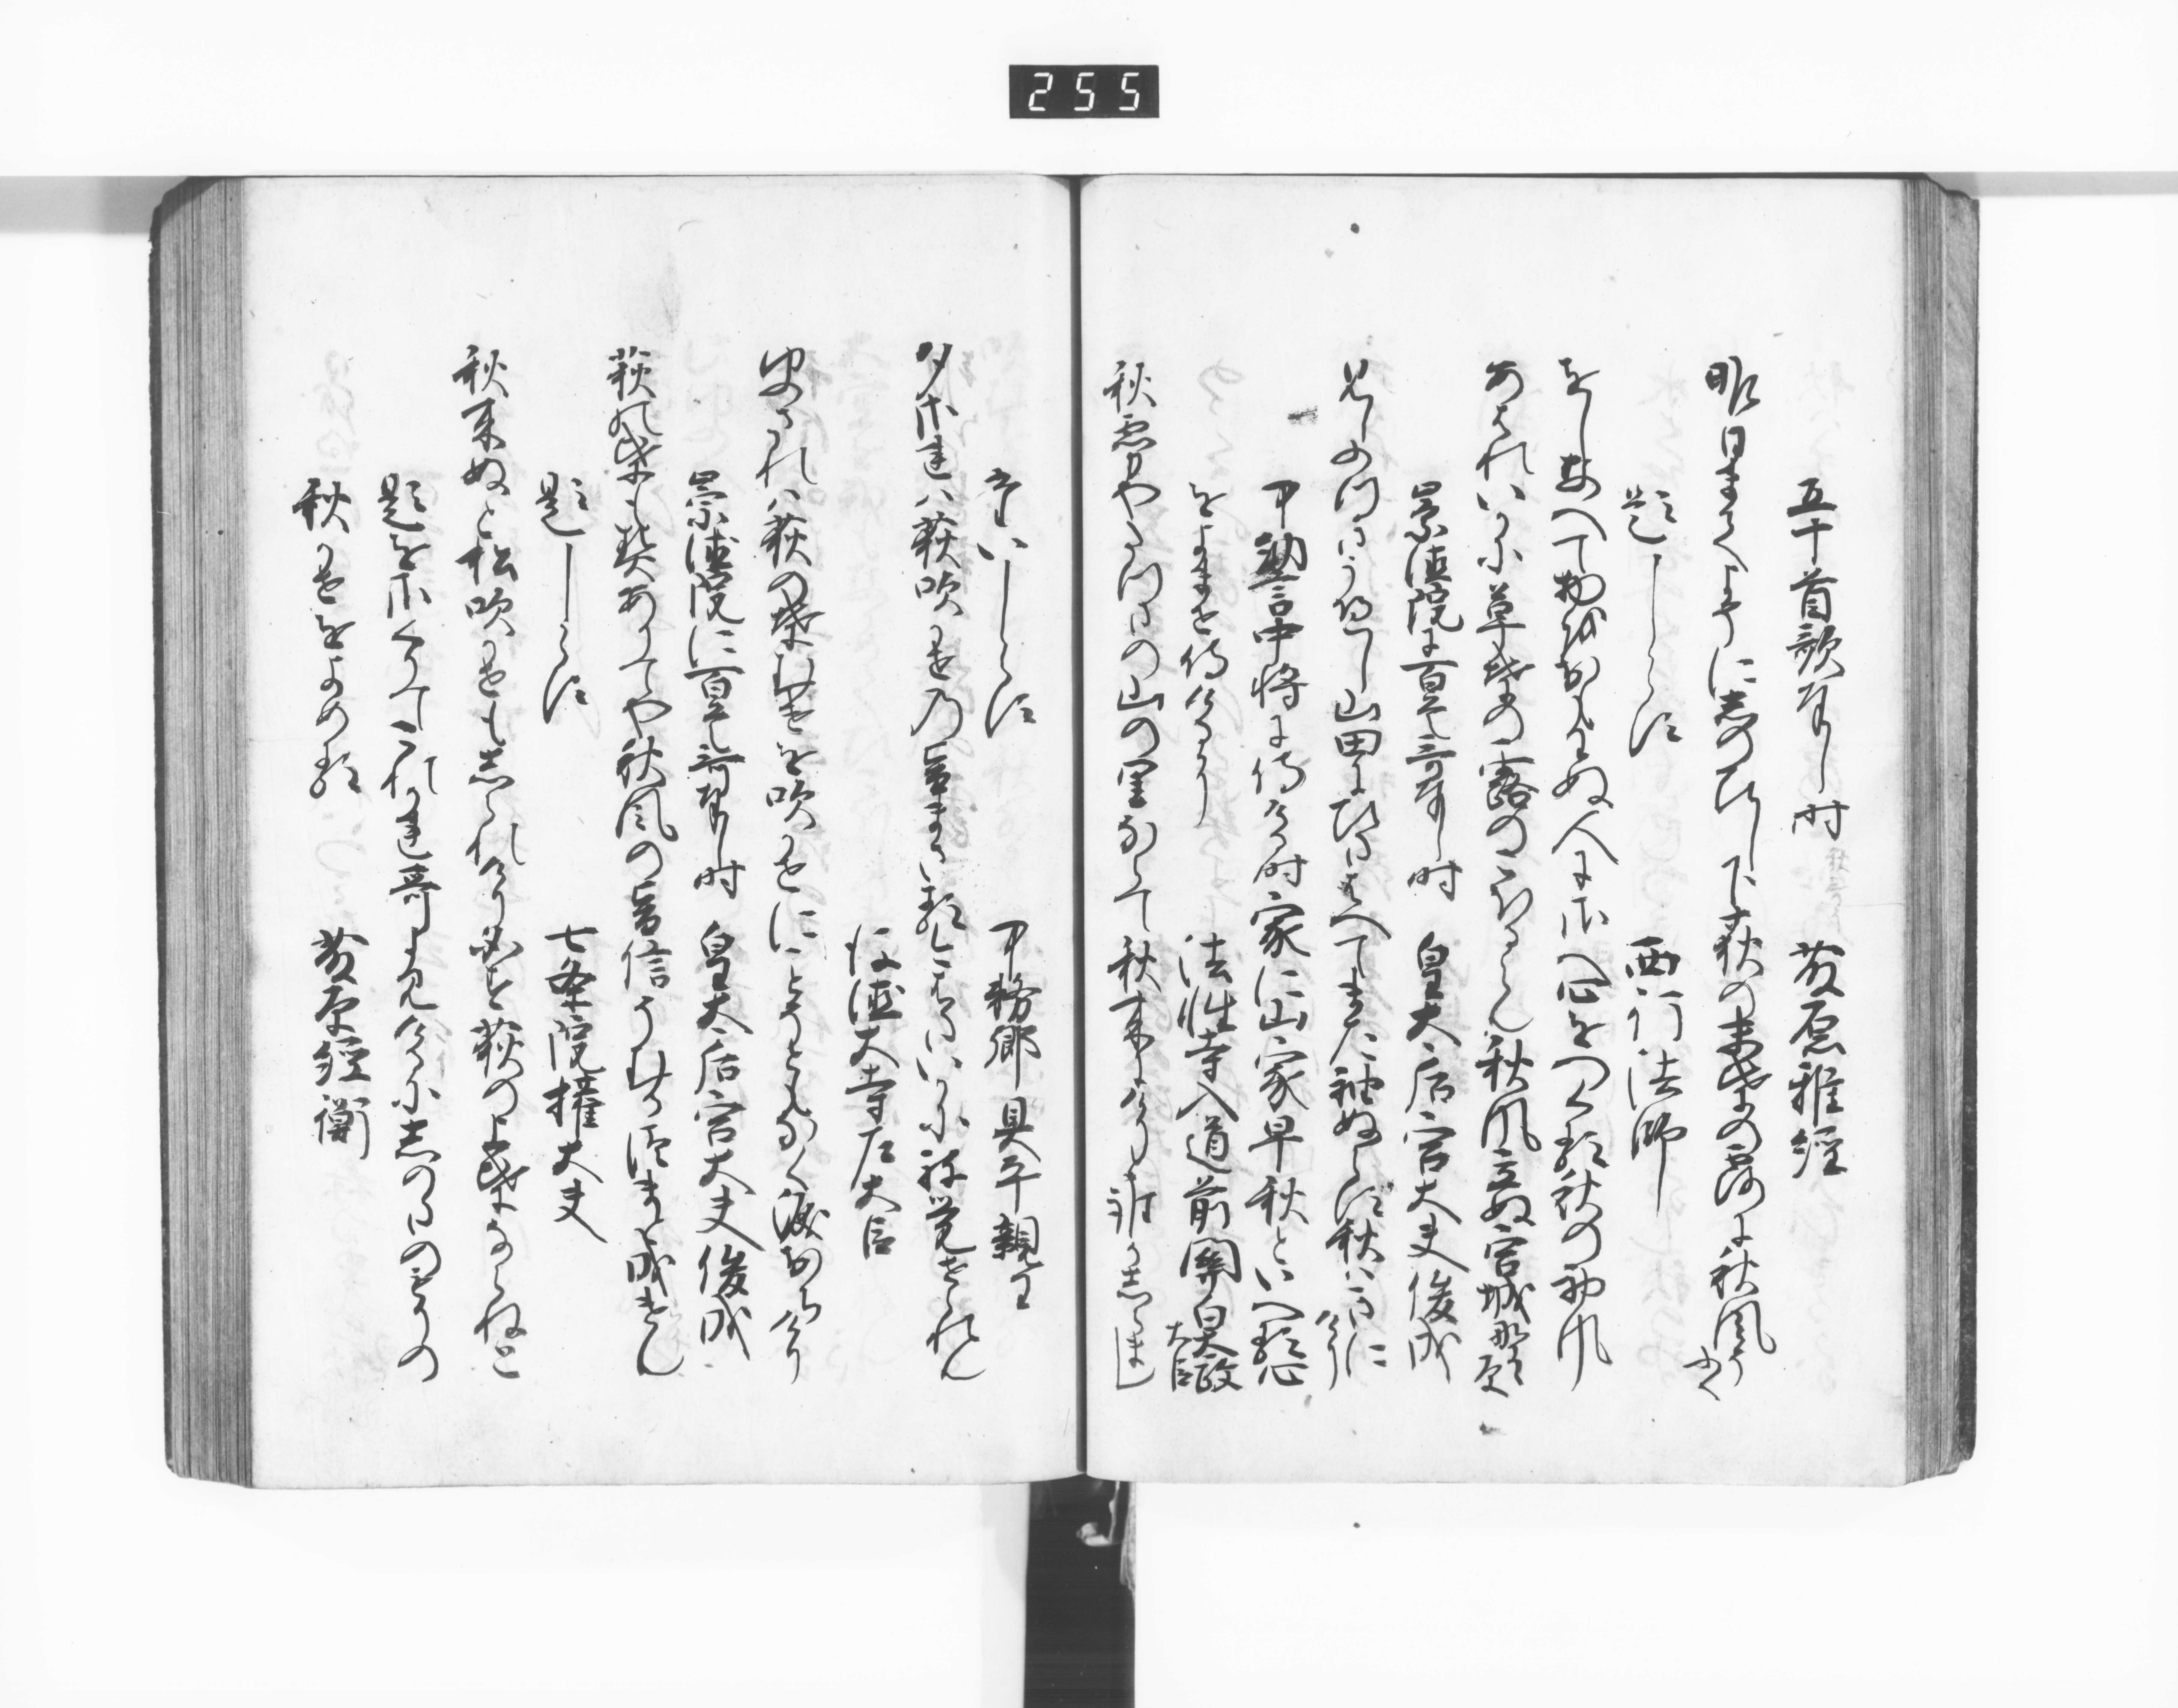 255
五十首歌奉し時　藤原雅経
昨日まてよそに志のひし下荻の末葉の露に秋風そ吹
題しらす　西行法師
をしなへて物をおもはぬ人にさへ心をつくる秋の初風
あはれいかに草葉の露のこほるらん秋風立ぬ宮城野の原
崇徳院に百首哥奉し時　皇太后宮大夫俊成
見しふつきうへし山田にひたはへてまた袖ぬらす秋はきにけり
中納言中将に侍ける時家に山家早秋といへる心
をよませ侍けるに　法性寺入道前関白太政大臣
秋霧やたつたの山の里ならて秋来にけりと誰かしらまし
たいしらす　中務卿具平親王
夕くれは荻吹かせの音まさる今はたいかに祢覚せられん
後徳大寺左大臣
夕されは荻の葉むけを吹かせにことそともなく涙おちけり
崇徳院に百首哥奉し時　皇太后宮大夫俊成
荻の葉も契ありてや秋風の音信そむるつまと成けん
題しらす　七条院権大夫
秋来ぬと松吹かせもしらせけり必荻の上葉ならねと
題をさくりてこれかれ哥よみけるに志のたのもりの
秋かせをよめる　藤原経衡